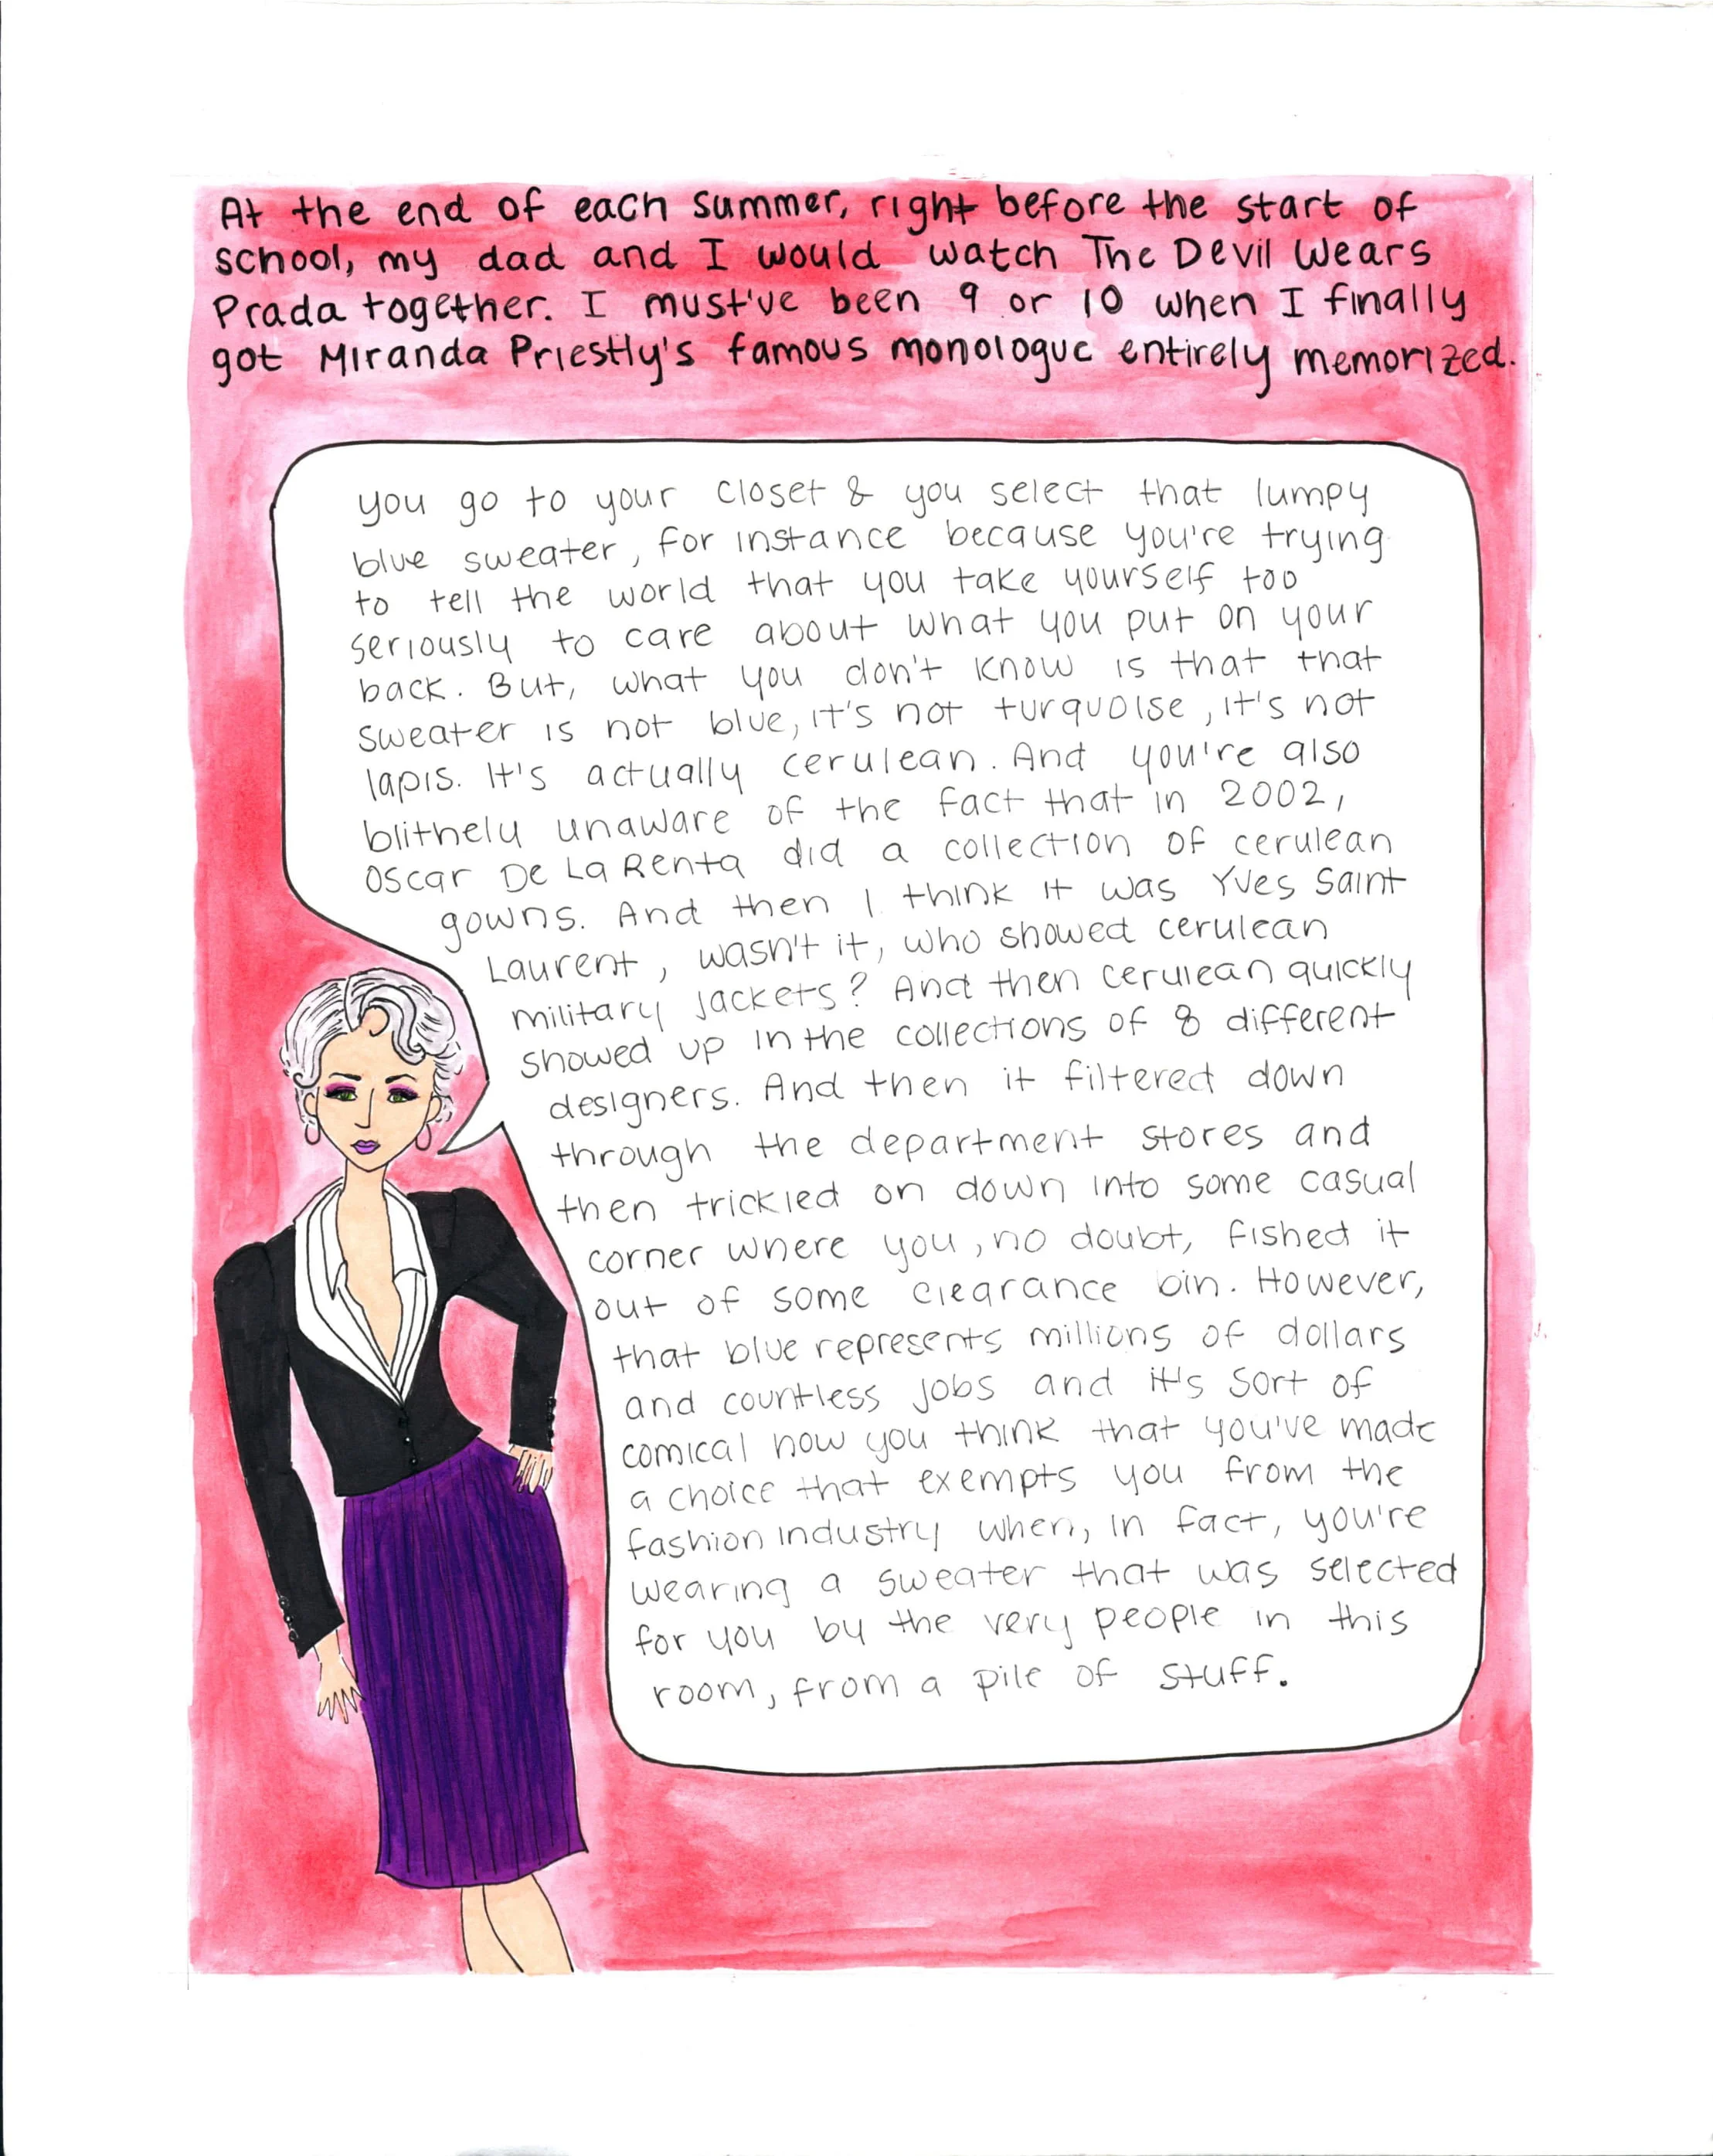 At the end of each summer, right before the start of
school, my dad and I would watch The Devil Wears
Prada together. I must've been 9 or 10 when I finally
got Miranda Priestly's famous monologue entirely memorized.
you go to your closet & you select that lumpy
blue sweater, for instance because you're trying
to tell the world that you take yourself too
seriously to care about what you put on your
back. But, what you don't know is that that
sweater is not blue, it's not turquoise, it's not
lapis. It's actually cerulean. And you're also
blithely unaware of the fact that in 2002,
Oscar De La Renta did a collection of cerulean
gowns. And then I think it was Yves Saint
Laurent, wasn't it, who showed cerulean
military jackets? And then cerulean quickly
showed up in the collections of 8 different
designers. And then it filtered down
through the department stores and
then trickled on down into some casual
corner where you, no doubt, fished it
out of some clearance bin. However,
that blue represents millions of dollars
and countless jobs and it's sort of
comical how you think that you've made
a choice that exempts you from the
fashion industry when, in fact, you're
wearing a sweater that was selected
for you by the very people in this
room, from a pile of stuff.